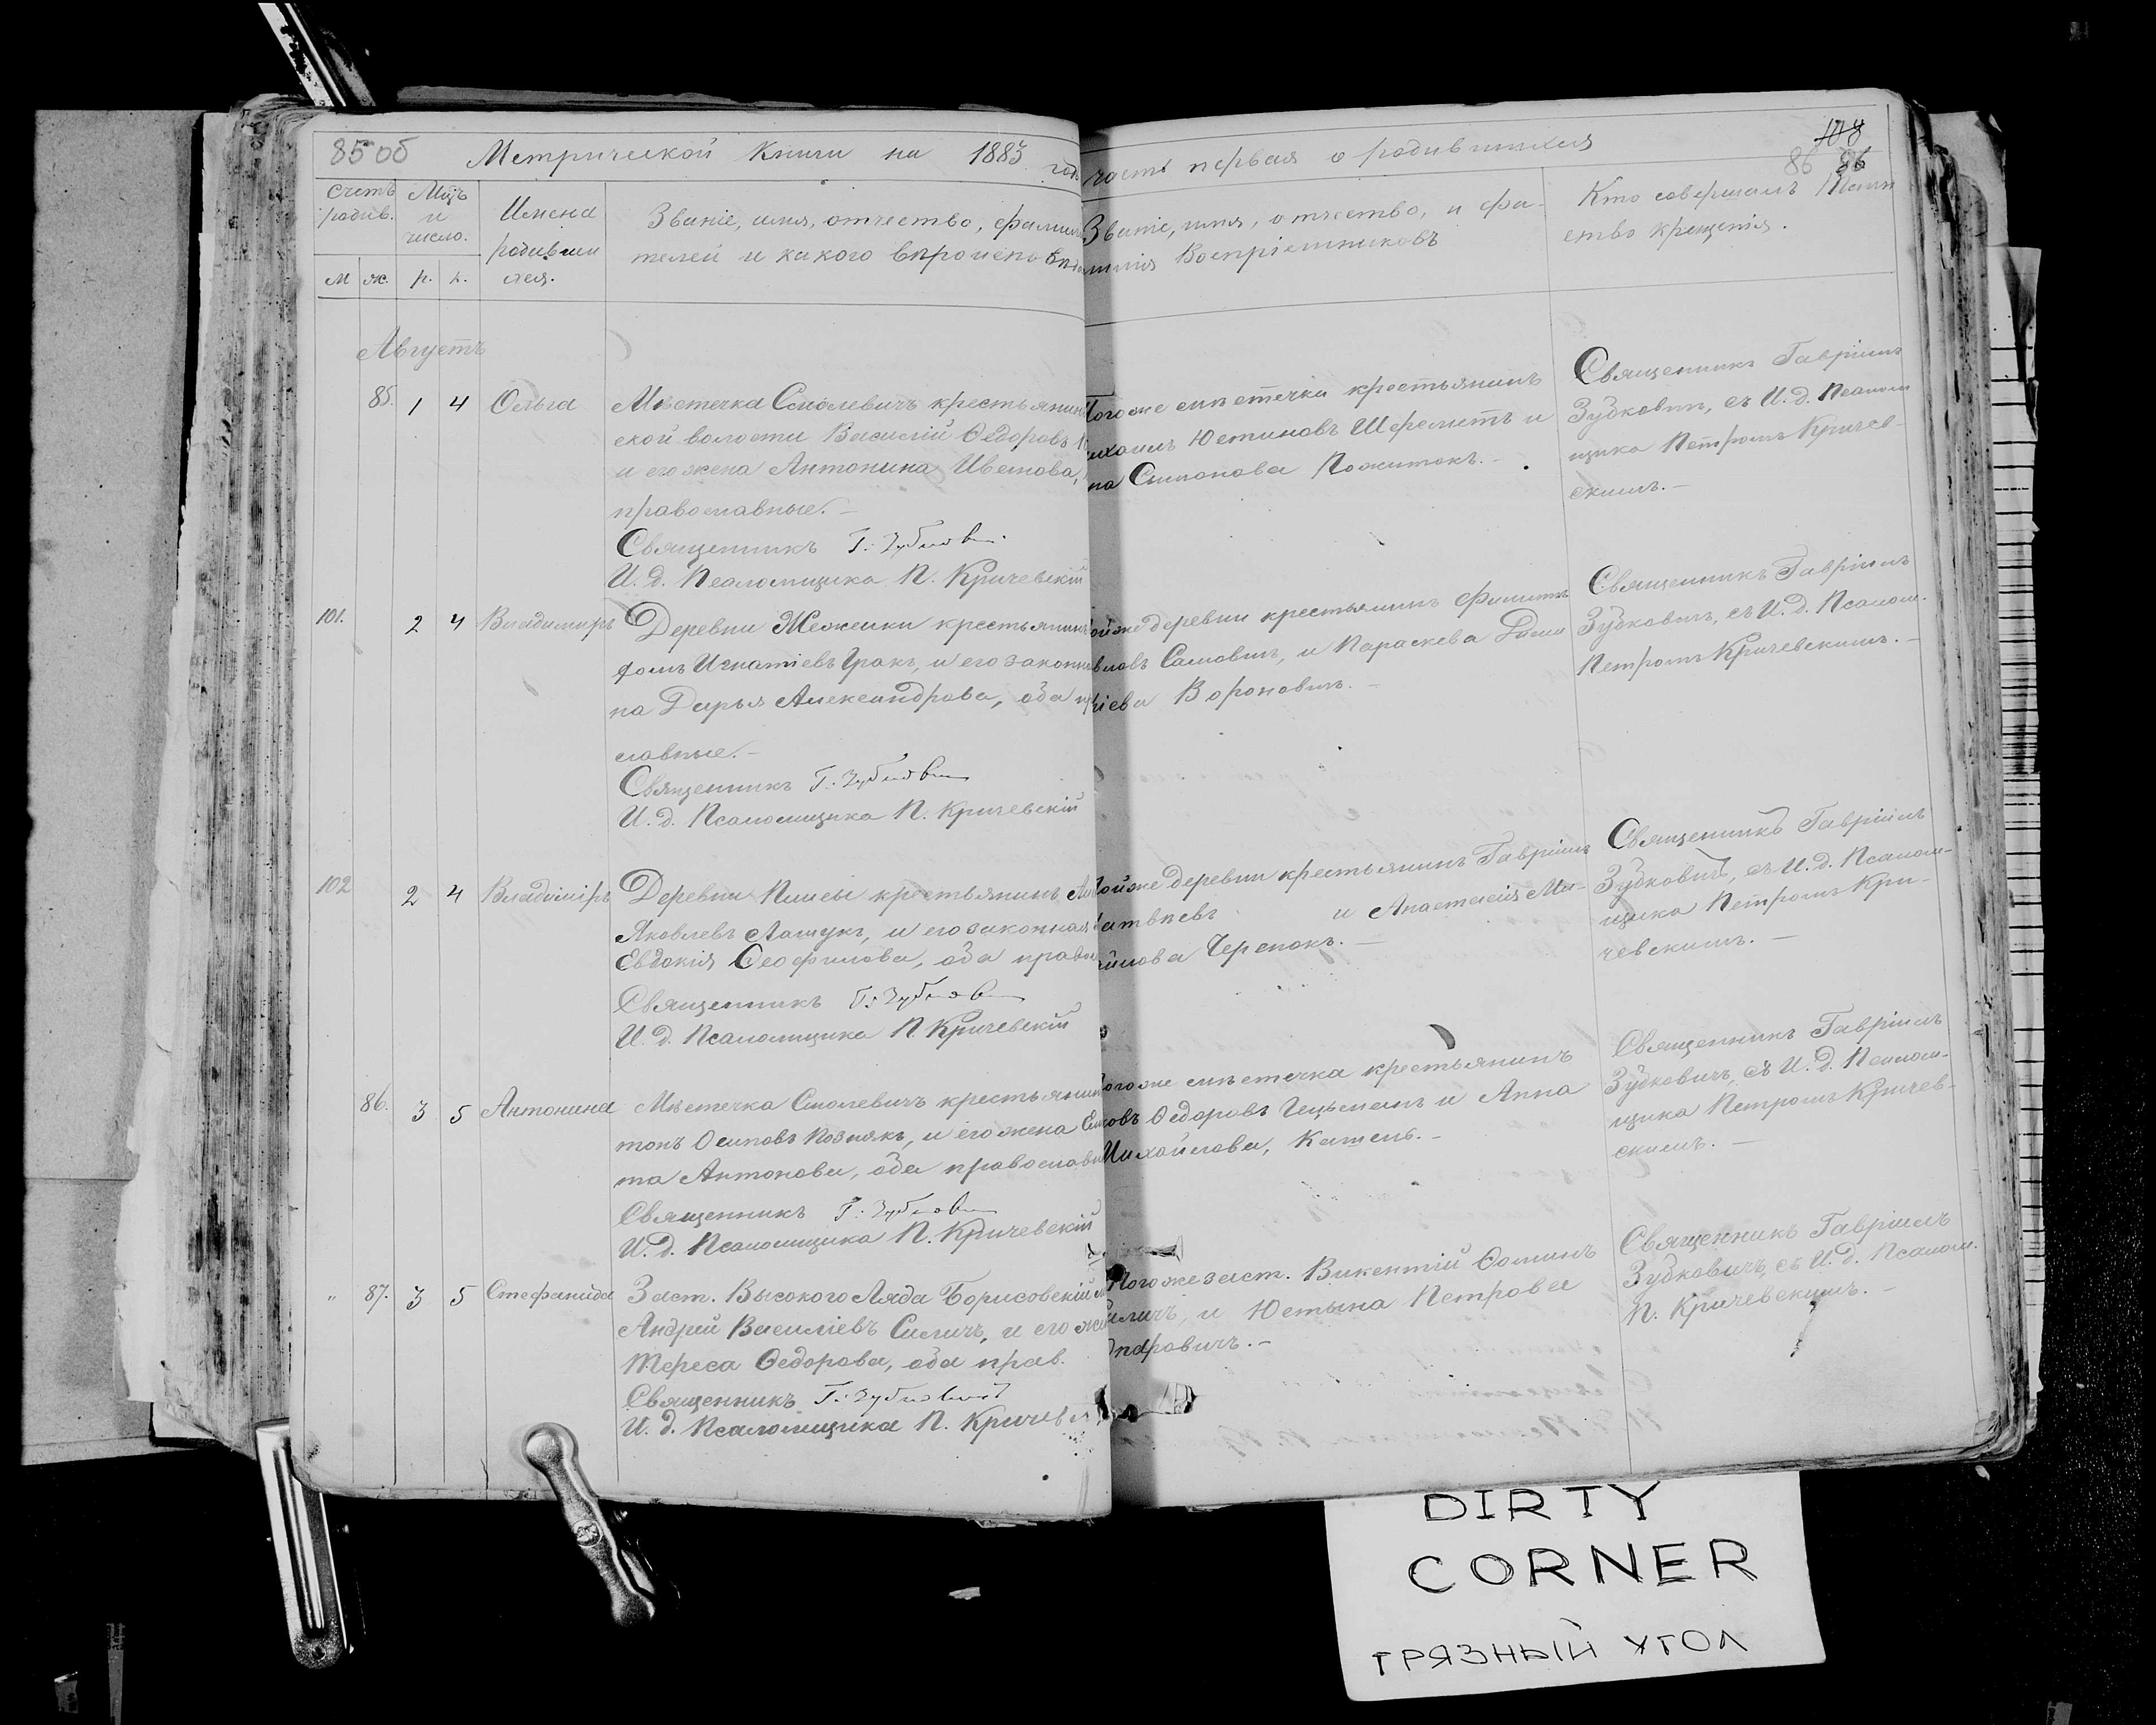 85 об
Метрической Книги на 1883 годъ
часть первая о родившихся
108
86 86
Счетъ родив.
М ж.
Мцъ и число.
р. к.
Имена родивши хся.
Званіе, имя, отчество, фамилія
телей и какого вѣроисповѣда
Званіе, имя, отчество, и фа-
милія Воспріемниковъ
Кто совершалъ Таин
ство крещенія.
Августъ
85. 1 4 Ольга
Мѣстечка Смолевичъ крестьянинъ
ской волости Василій Ѳедоровъ
и его жена Антонина Иванова,
православные.-
Священникъ Г. Зубкович
И. д. Псаломщика П. Кричевскій
Тогоже мѣстечка крестьянинъ
Юстиновъ Шереметъ и
на Симонова Пожитокъ.-
Священникъ Гавріилъ
Зубковичъ, съ И. д. Псалом
щика Петромъ Кричев-
скимъ.-
101. 2 4 Владимиръ
Деревни Жежелки крестьянинъ
Игнатіевъ Гракъ, и его законна
на Дарья Александрова, оба пр
славные.-
Священникъ Г. Зубкович
И. д. Псаломщика П. Кричевскій
тойже деревни крестьянинъ Филиппъ
вловъ Самовичъ, и Параскева
ріева Вороновичъ.-
Священникъ Гавріилъ
Зубковичъ, съ И. д. Псалом.
Петромъ Кричевскимъ.-
102 2 4 Владиміръ
Деревни Плисы крестьянинъ
Яковлевъ Лашукъ, и его законная
Евдокія Ѳеофилова, оба правос
Священникъ Г. Зубкович
И. д. Псаломщика П. Кричевскій
тойже деревни крестьянинъ Гавріилъ
Матвѣевъ и Анастасія Ми-
хайлова Черепокъ.-
Священникъ Гавріилъ
Зубковичъ, съ И. д. Псалом-
щика Петромъ Кри-
чевскимъ.-
86. 3 5 Антонина
Мѣстечка Смолевичъ крестьянинъ
тонъ Осиповъ Познякъ, и его жена
та Антонова, оба православн
Священникъ Г. Зубкович
И. д. Псаломщика П. Кричевскій
тогоже мѣстечка крестьянинъ
Ѳедоровъ Гецьманъ и Анна
Михайлова, Камень.-
Священникъ Гавріилъ
Зубковичъ, съ И. д. Псалом-
щика Петромъ Кричев-
скимъ.-
„ 87. 3 5 Стефанида
Заст. Высокого Ляда Борисовскій
Андрей Василіевъ Силичъ, и его же
Тереса Ѳедорова, оба прав.
Священникъ Г. Зубковичъ
И. д. Псаломщика П. Кричевск
Тогоже заст. Викентій Ѳоминъ
Силичъ, и Юстына Петрова
Священникъ Гавріилъ
Зубковичъ, съ И. д. Псалом.
П. Кричевскимъ.-
DIRTY
CORNER
ГРЯЗНЫЙ УГОЛ